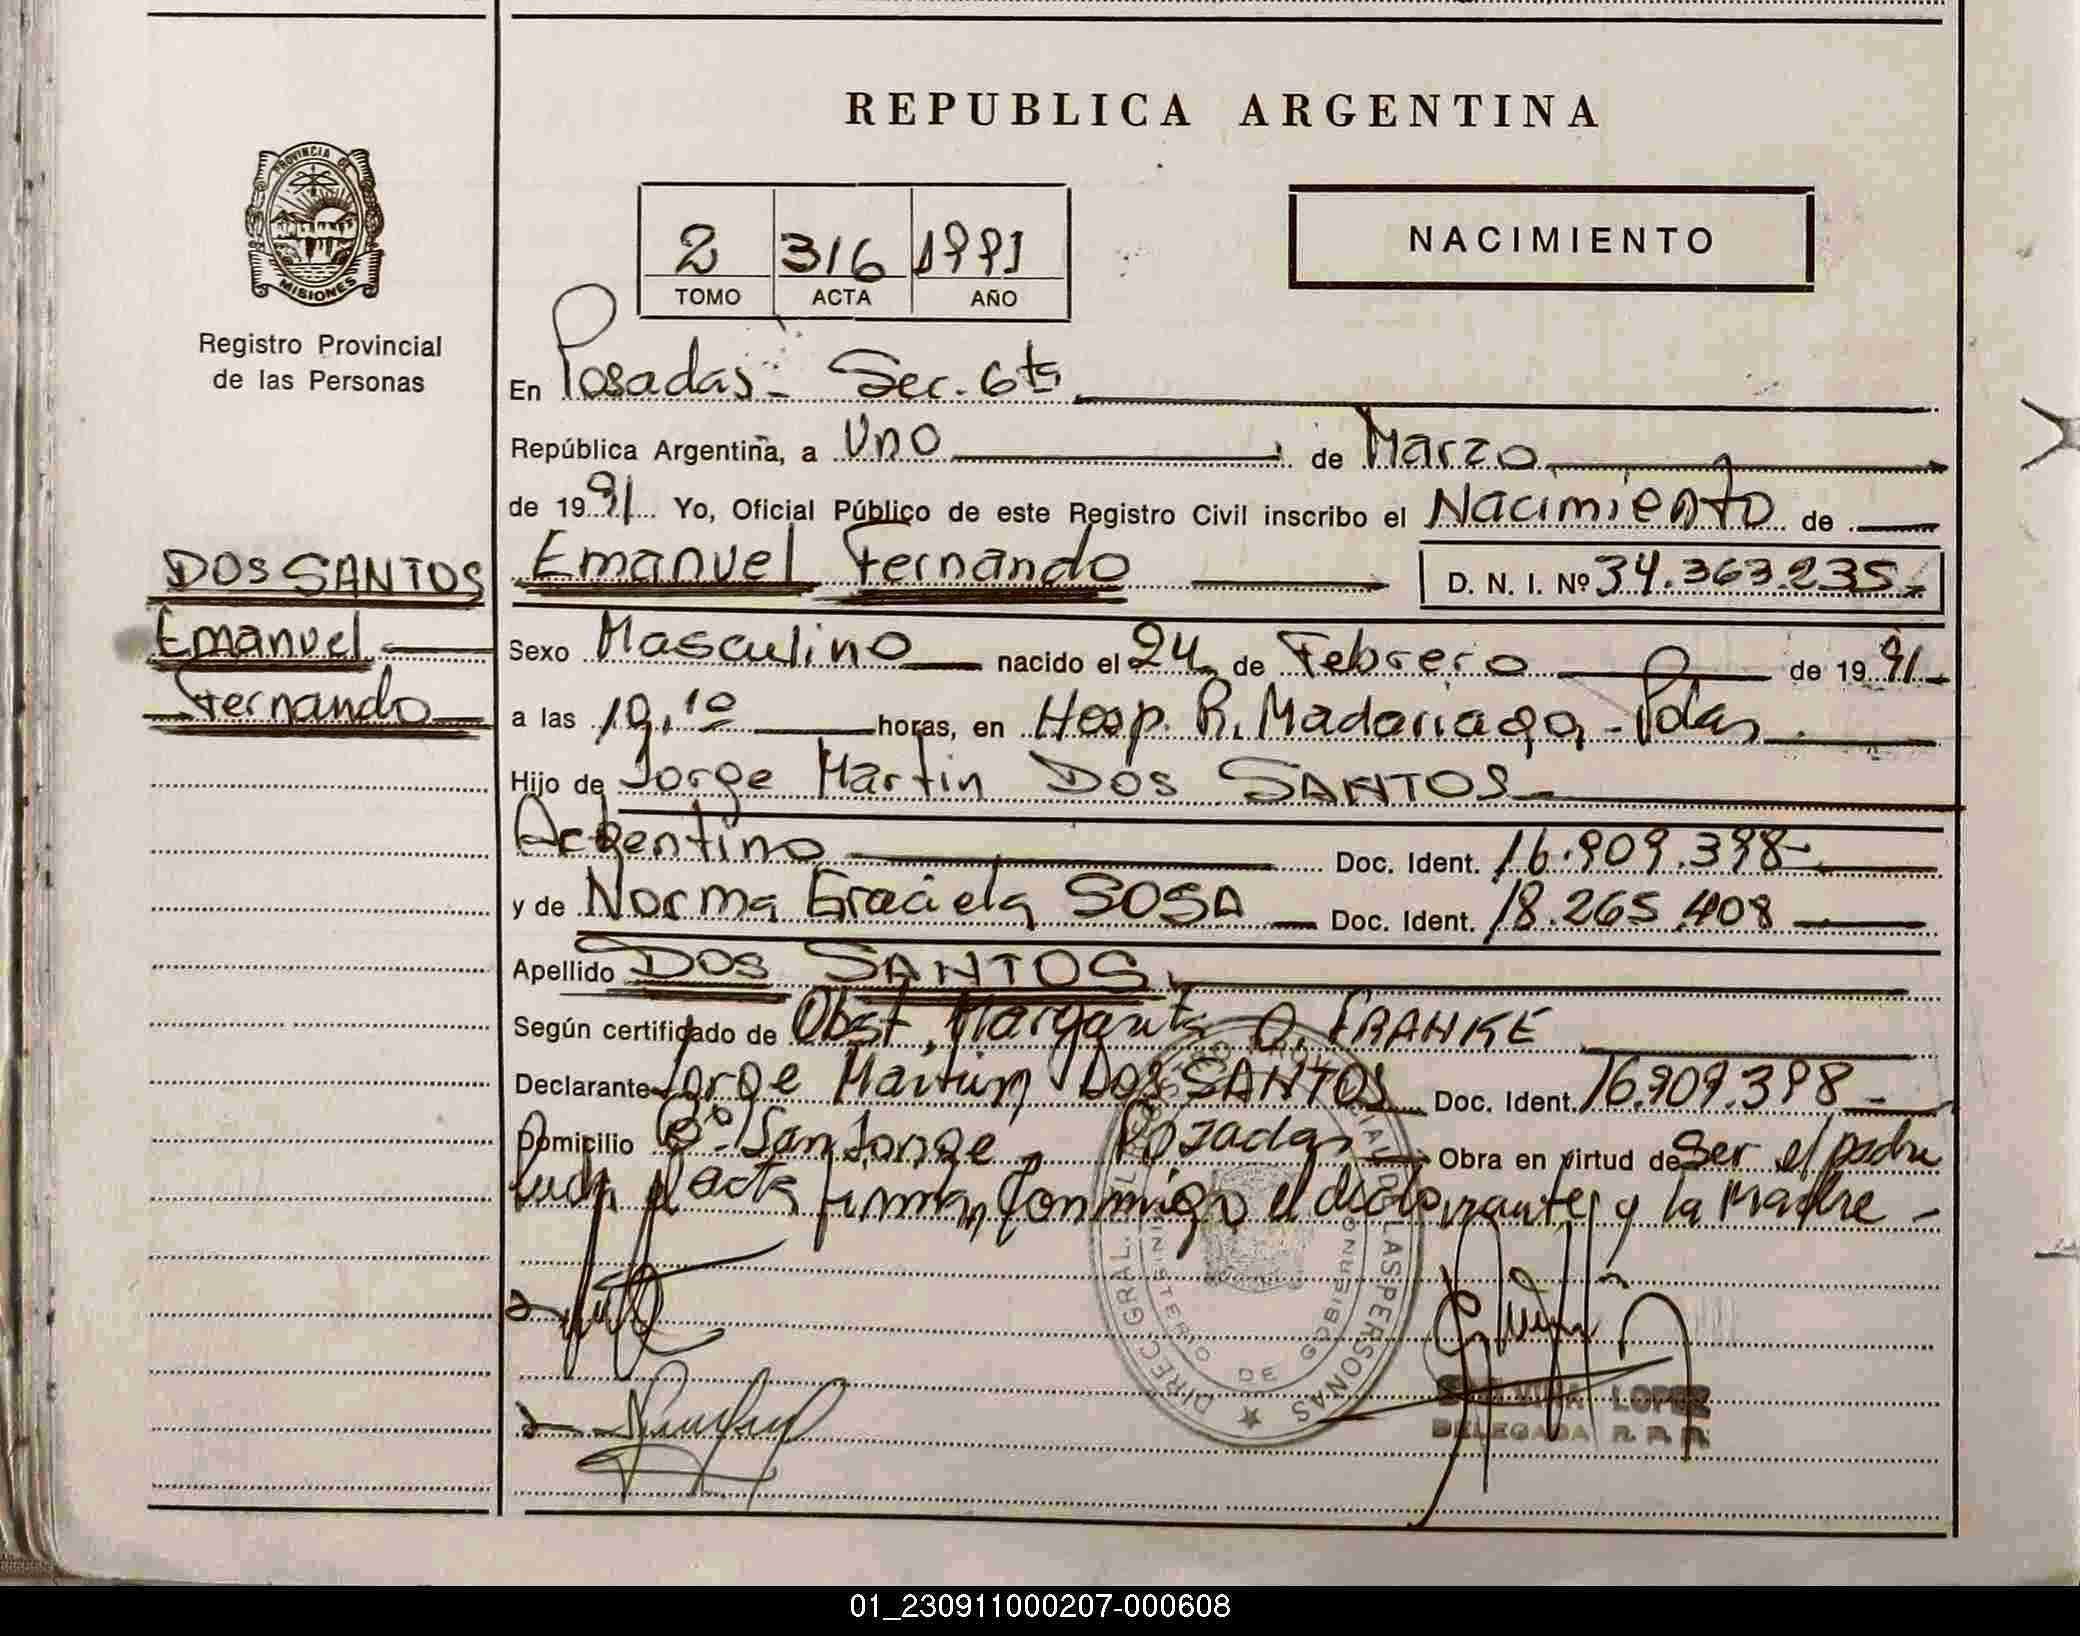 REPUBLICA ARGENTINA
PROVINCIA DE
MISIONES
Registro Provincial
de las Personas
2 316 1991
TOMO ACTA AÑO
NACIMIENTO
En Posadas - Sec. 6ta
República Argentina, a Uno de Marzo
de 1991 Yo, Oficial Público de este Registro Civil inscribo el Nacimiento de
DOS SANTOS
Emanuel
Fernando
Emanuel Fernando D. N. I. Nº 34.363.235.-
Sexo Masculino nacido el 24 de Febrero de 1991
a las 19,10 horas, en Hosp. R. Madariaga - Pdas
Hijo de Jorge Martin DOS SANTOS
Argentino Doc. Ident. 16.909.398-
y de Norma Graciela SOSA Doc. Ident. 18.265.408
Apellido DOS SANTOS
Según certificado de Obst. Margarita O. FRANKE
Declarante Jorge Martin DOS SANTOS Doc. Ident. 16.909.398-
Domicilio Bº San Jorge - Posadas Obra en virtud de Ser el padre
el acta firman conmigo el declarante y la Madre -
DIREC. GRAL. LAS PERSONAS
MINISTERIO DE GOBIERNO
LOPEZ
DELEGADA R. P. P.
01_230911000207-000608